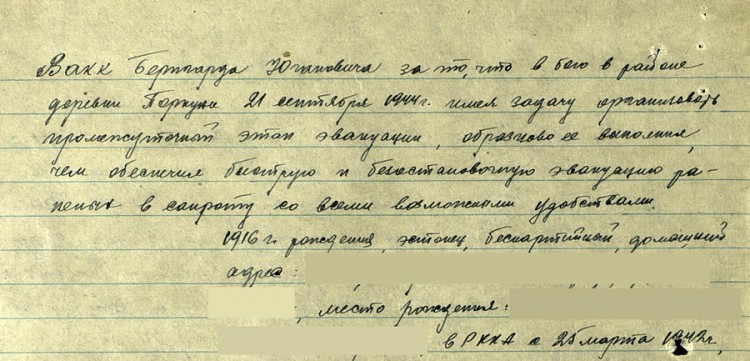 Вакк Бернгарда Югановича за то, что в бою в районе
деревни Поркуни 21 сентября 1944 г. имея задачу организовать
промежуточный этап эвакуации, образцово ее выполнил,
чем обеспечил быструю и безостановочную эвакуацию ра-
неных в санроту со всеми возможными удобствами.
1916 г. рождения, эстонец, беспартийный, домашний
адрес:
, место рождения:
в РККА с 25 марта 1942 г.,